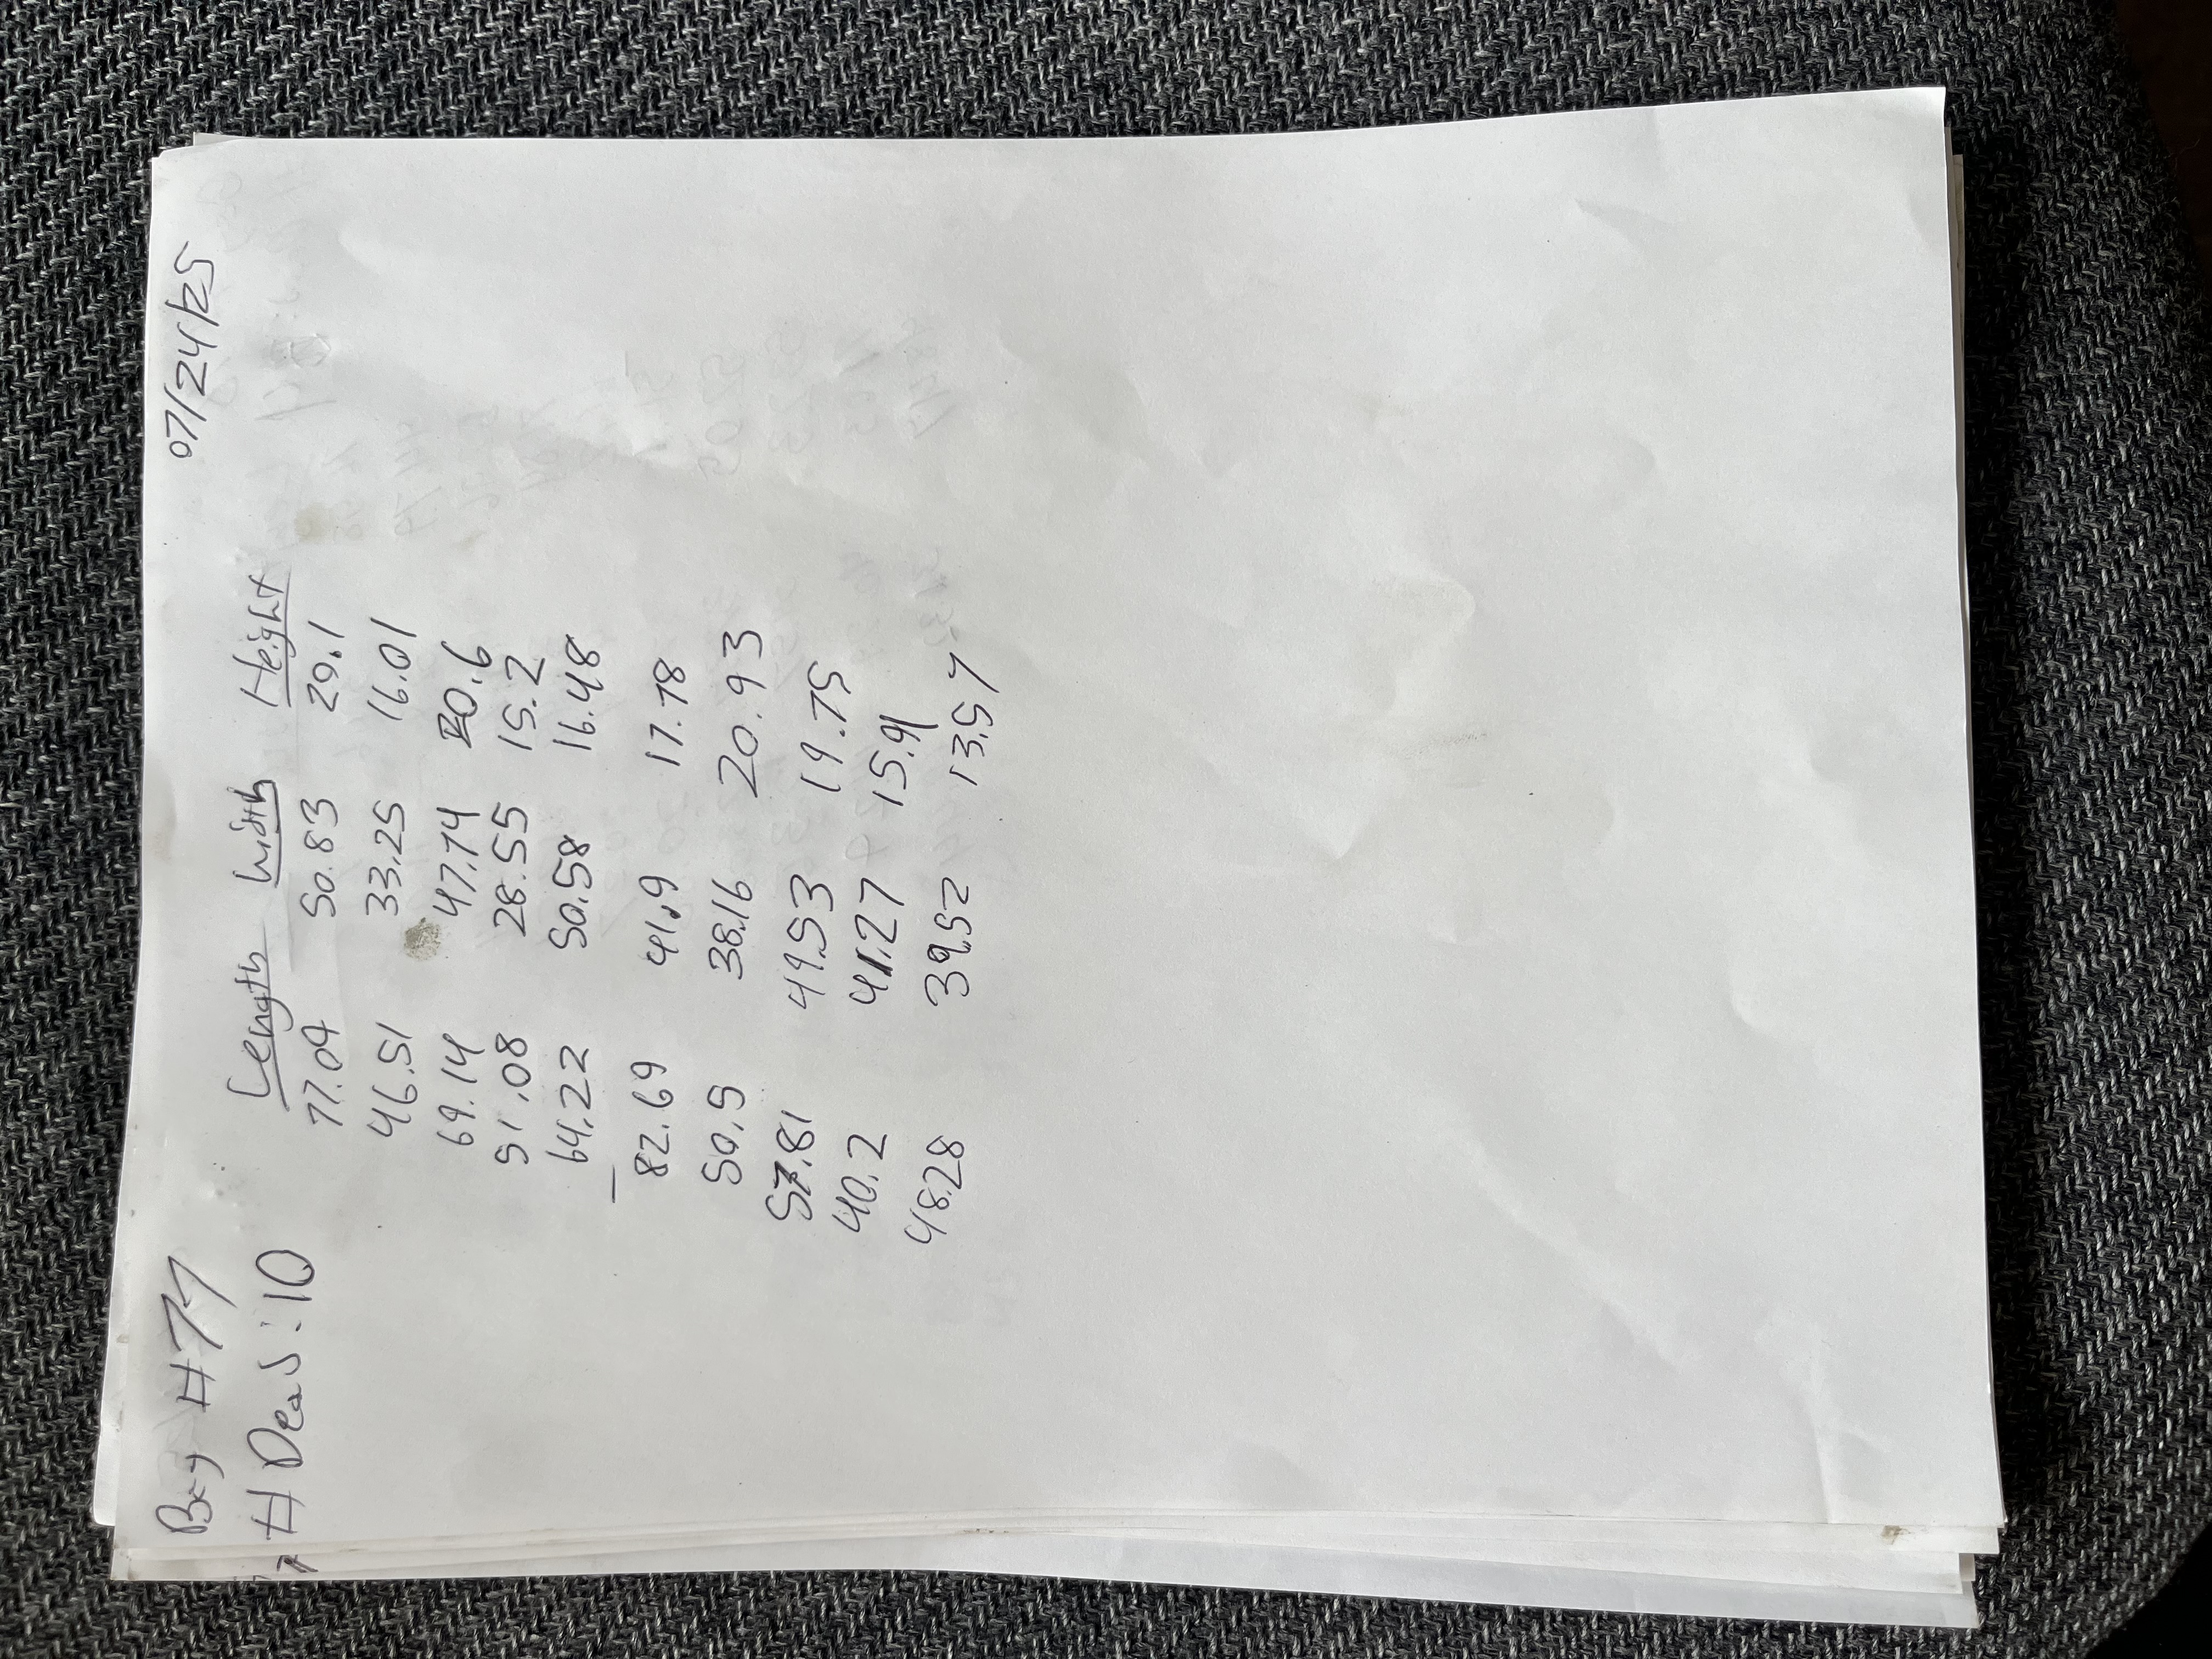 Bag #77 07/24/25
# Dead: 10 Length Width Height
77.09 50.83 20.1
46.51 33.25 16.01
69.14 47.74 20.6
51.08 28.55 15.2
64.22 50.58 16.48
82.69 41.9 17.78
50.5 38.16 20.93
57.81 49.53 19.75
40.2 41.27 15.91
48.28 39.52 13.57